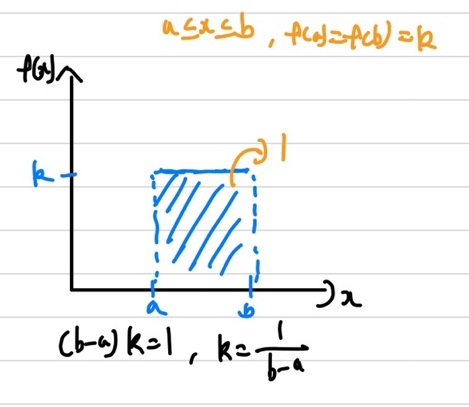 a≤x≤b, f(a)=f(b)=k
f(x)
k
1
a
b
x
(b-a)k=1, k=1/(b-a)